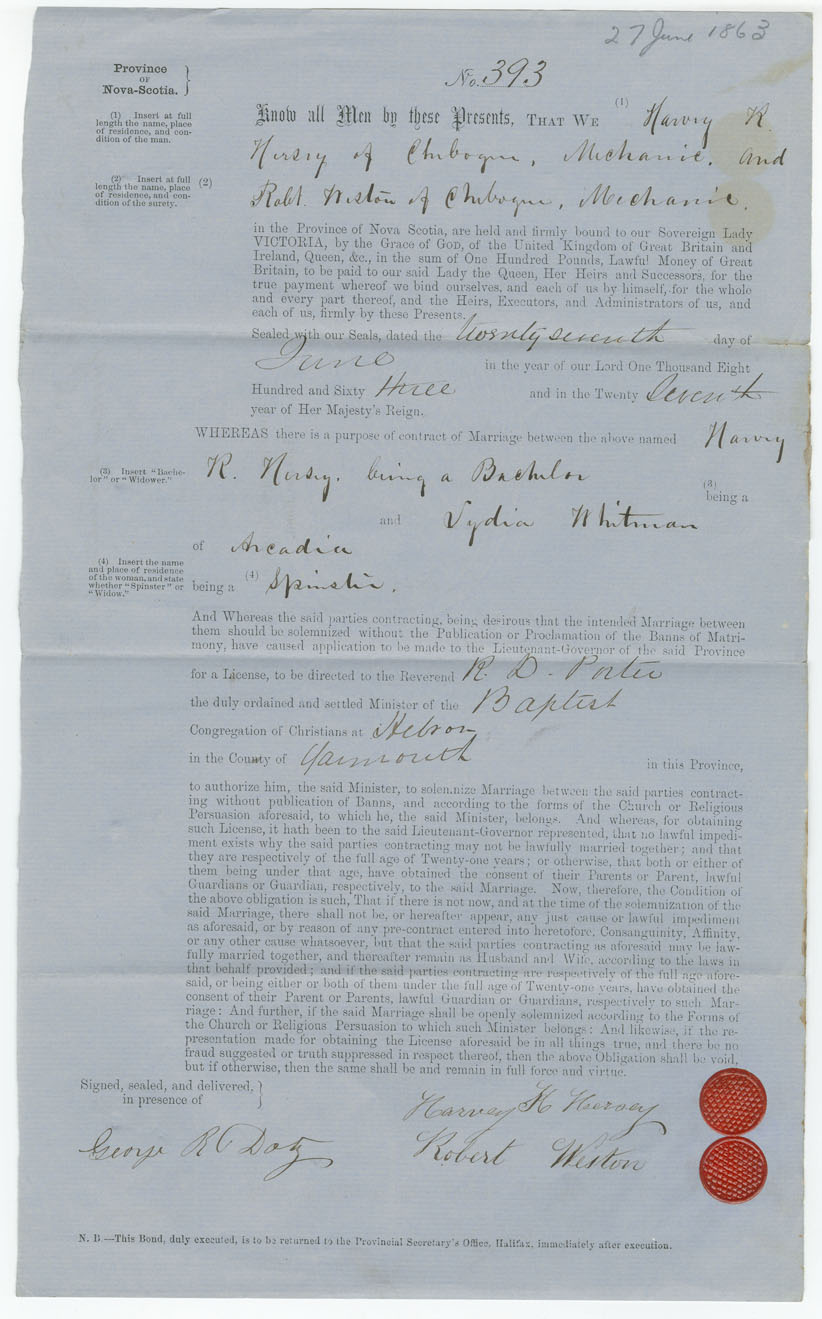 27 June 1863
Province
OF
Nova-Scotia.
No. 393
(1) Insert at full
length the name, place
of residence, and con-
dition of the man.
Know all Men by these Presents, THAT WE (1) Harvey K.
Hersey of Chebogue, Mechanic, and
(2) Insert at full
length the name, place
of residence, and con-
dition of the surety.
(2) Robt. Weston of Chebogue, Mechanic.
in the Province of Nova Scotia, are held and firmly bound to our Sovereign Lady
VICTORIA, by the Grace of GOD, of the United Kingdom of Great Britain and
Ireland, Queen, &c., in the sum of One Hundred Pounds, Lawful Money of Great
Britain, to be paid to our said Lady the Queen, Her Heirs and Successors, for the
true payment whereof we bind ourselves, and each of us by himself, for the whole
and every part thereof, and the Heirs, Executors, and Administrators of us, and
each of us, firmly by these Presents.
Sealed with our Seals, dated the twenty seventh day of
June in the year of our Lord One Thousand Eight
Hundred and Sixty three and in the Twenty Seventh
year of Her Majesty's Reign.
WHEREAS there is a purpose of contract of Marriage between the above named Harvey
(3) Insert "Bache-
lor" or "Widower."
K. Hersey. being a Bachelor
(3)
being a
and Lydia Whitman
of Arcadia
(4) Insert the name
and place of residence
of the woman, and state
whether "Spinster" or
"Widow."
being a (4) Spinster.
And Whereas the said parties contracting, being desirous that the intended Marriage between
them should be solemnized without the Publication or Proclamation of the Banns of Matri-
mony, have caused application to be made to the Lieutenant-Governor of the said Province
for a License, to be directed to the Reverend R. D. Porter
the duly ordained and settled Minister of the Baptist
Congregation of Christians at Hebron
in the County of Yarmouth in this Province,
to authorize him, the said Minister, to solemnize Marriage between the said parties contract-
ing without publication of Banns, and according to the forms of the Church or Religious
Persuasion aforesaid, to which he, the said Minister, belongs. And whereas, for obtaining
such License, it hath been to the said Lieutenant-Governor represented, that no lawful impedi-
ment exists why the said parties contracting may not be lawfully married together; and that
they are respectively of the full age of Twenty-one years; or otherwise, that both or either of
them being under that age, have obtained the consent of their Parents or Parent, lawful
Guardians or Guardian, respectively, to the said Marriage. Now, therefore, the Condition of
the above obligation is such, That if there is not now, and at the time of the solemnization of the
said Marriage, there shall not be, or hereafter appear, any just cause or lawful impediment
as aforesaid, or by reason of any pre-contract entered into heretofore, Consanguinity, Affinity,
or any other cause whatsoever, but that the said parties contracting as aforesaid may be law-
fully married together, and thereafter remain as Husband and Wife, according to the laws in
that behalf provided; and if the said parties contracting are respectively of the full age afore-
said, or being either or both of them under the full age of Twenty-one years, have obtained the
consent of their Parent or Parents, lawful Guardian or Guardians, respectively to such Mar-
riage: And further, if the said Marriage shall be openly solemnized according to the Forms of
the Church or Religious Persuasion to which such Minister belongs: And likewise, if the re-
presentation made for obtaining the License aforesaid be in all things true, and there be no
fraud suggested or truth suppressed in respect thereof, then the above Obligation shall be void,
but if otherwise, then the same shall be and remain in full force and virtue.
Signed, sealed, and delivered,
in presence of
Harvey K Hersey
George R Doty
Robert Weston
N. B.—This Bond, duly executed, is to be returned to the Provincial Secretary's Office, Halifax, immediately after execution.